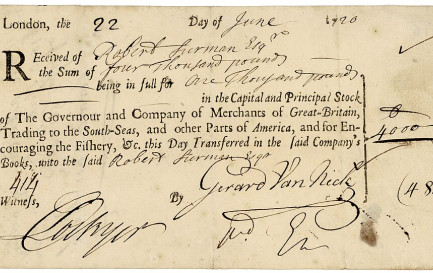 London, the 22 Day of June 1720
Received of Robert Surman Esqr
the Sum of four thousand pounds
being in full for one thousand pounds
in the Capital and Principal Stock
of The Governour and Company of Merchants of Great-Britain,
Trading to the South-Seas, and other Parts of America, and for En-
couraging the Fishery, &c. this Day Transferred in the said Company's
Books, unto the said Robert Surman Esqr
4000
Witness, By Gerard Van Neck